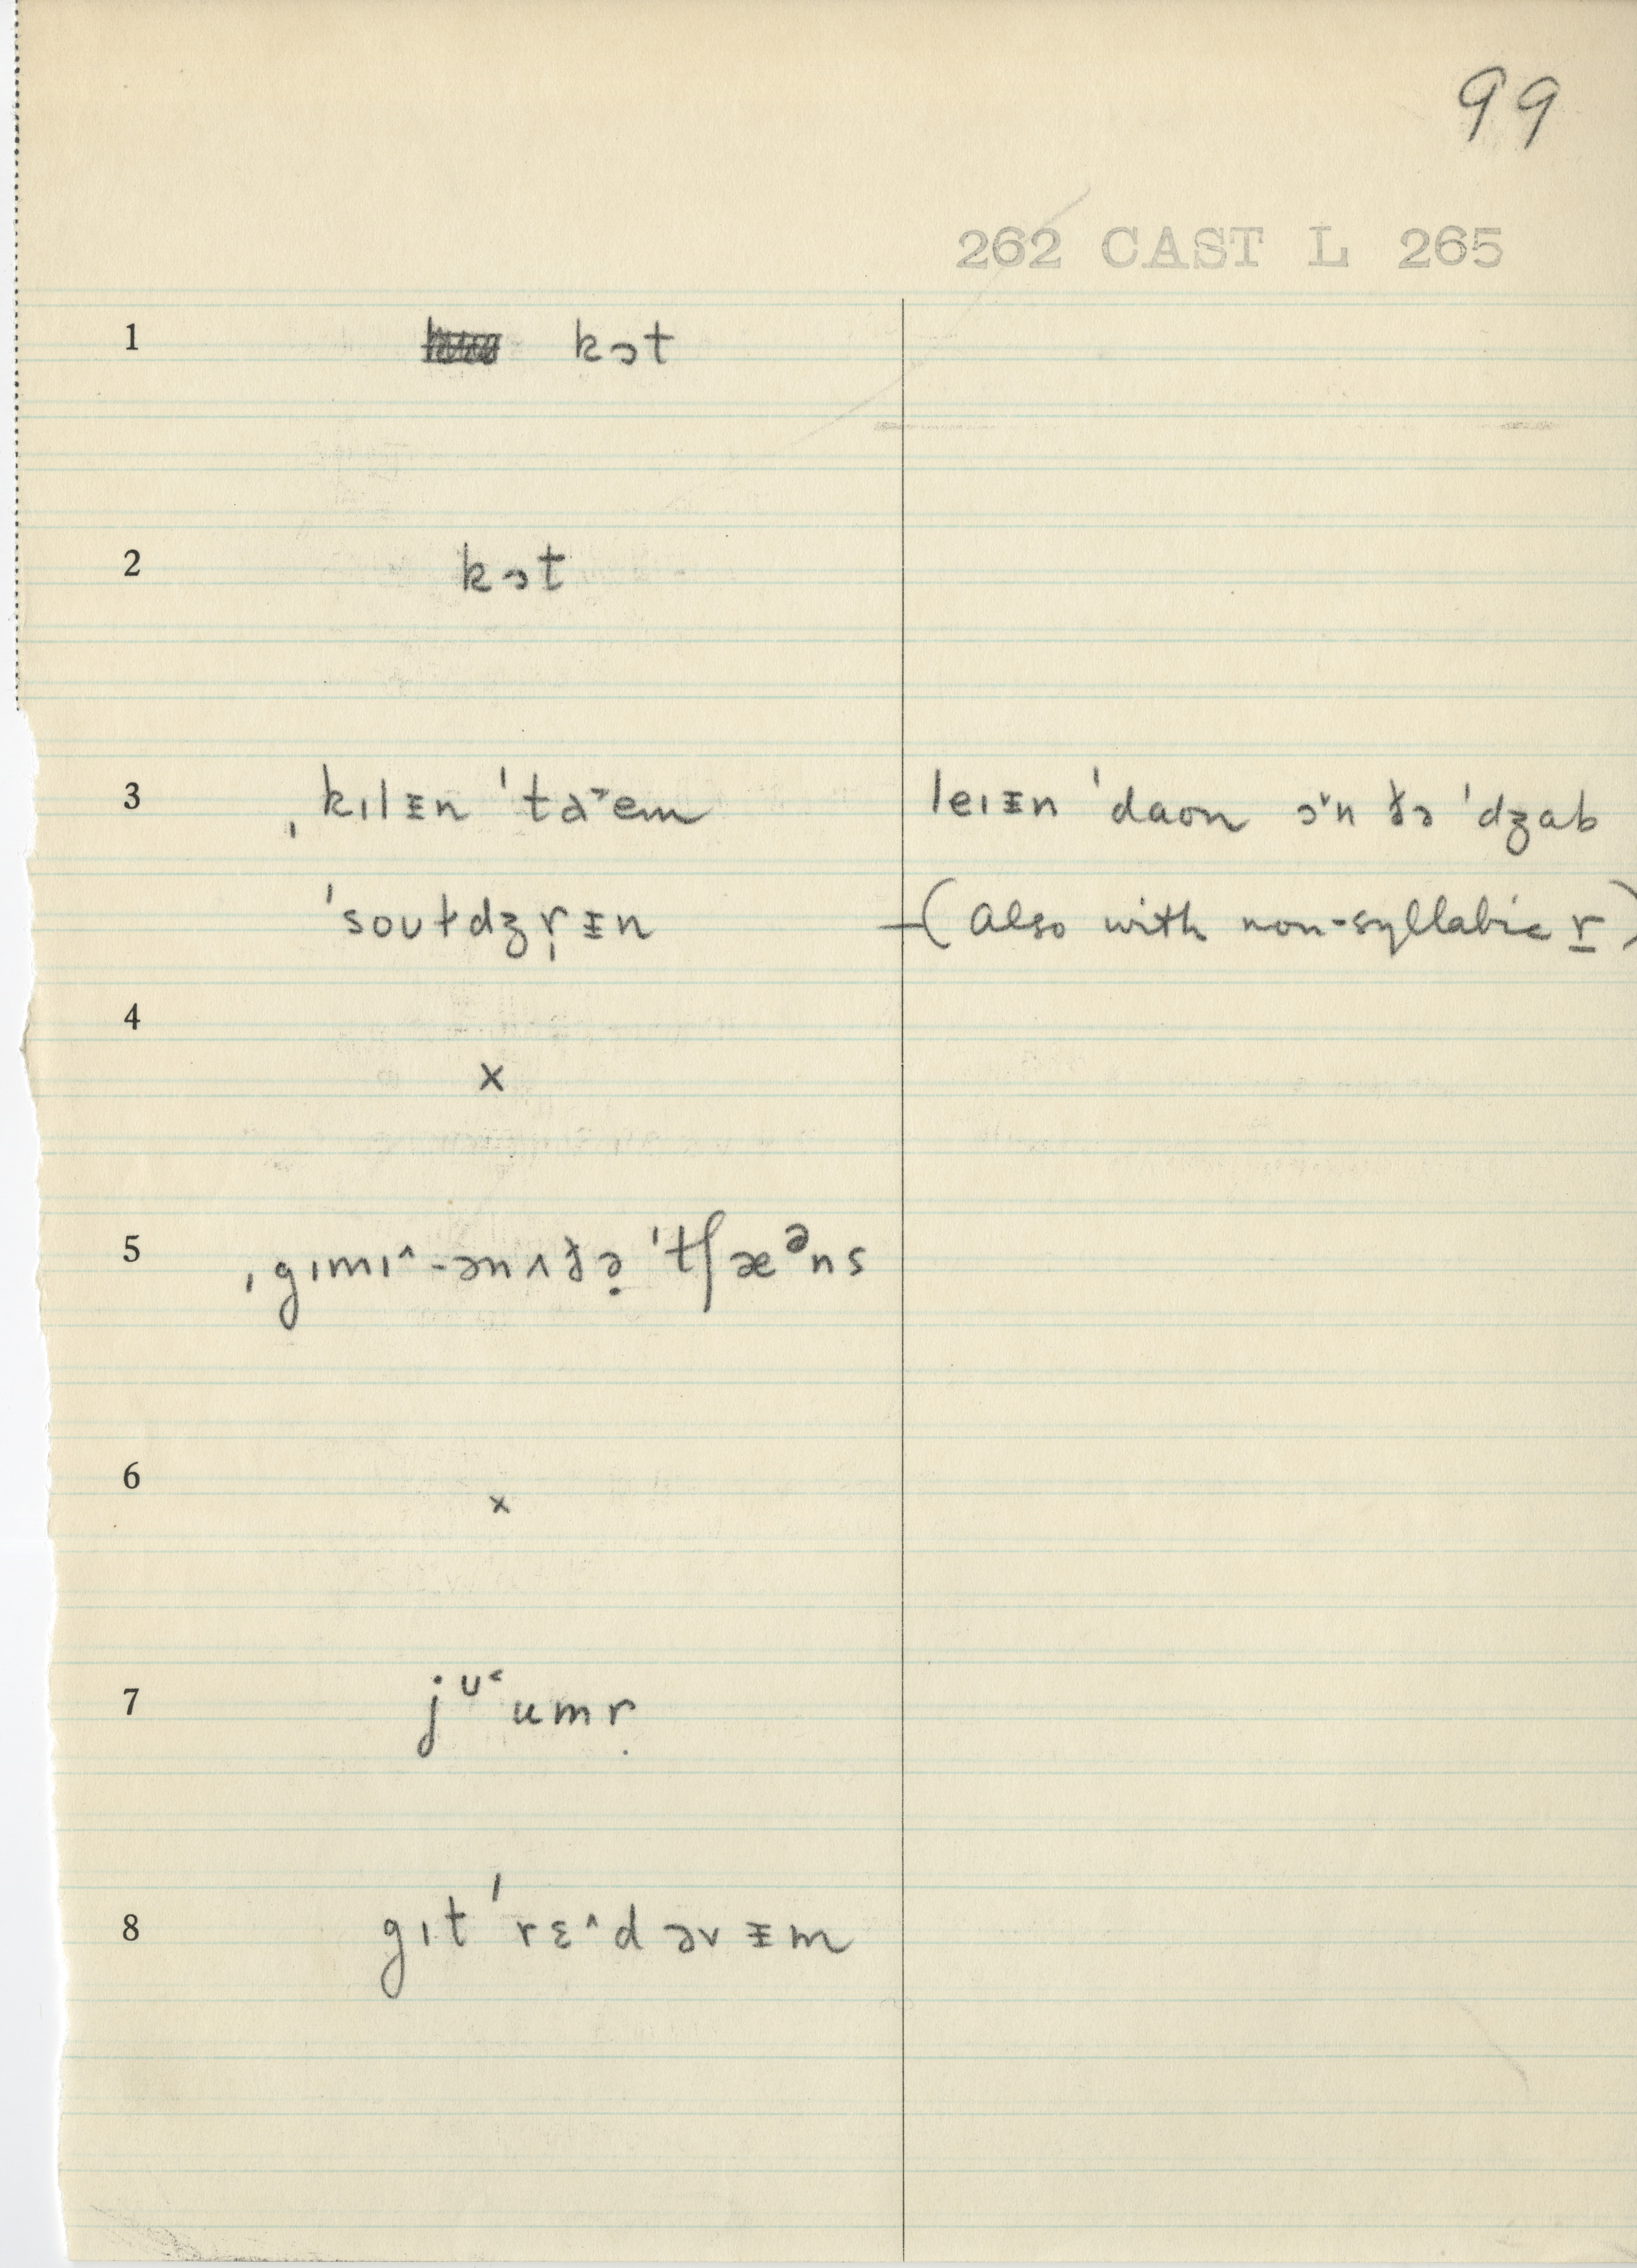 99
262 CAST L 265
1 kɔt
2 kɔt
3 ˌkɪlᵻn ˈta˞em leɪᵻn ˈdaon ɔ˞n ðə ˈdʒab
ˈsoʊɫdʒr̩ᵻn (also with non-syllabic r)
4 x
5 ˌgɪmɪ^-ənʌðə̣ ˈtʃæᵊns
6 x
7 jᶷ˂umr̩
8 gɪt ˈrɛ^d əvᵻm